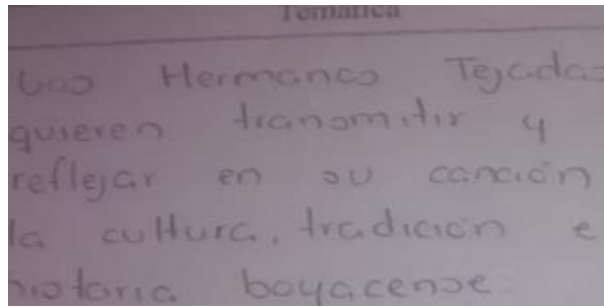 Temática
Los Hermanos Tejadas
quieren transmitir y
reflejar en su canción
la cultura, tradición e
historia boyacense.